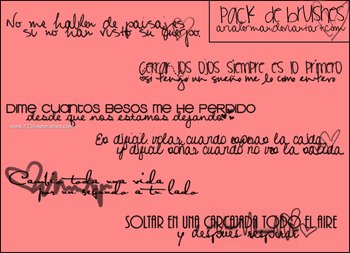 No me hablen de paisajes
si no han visto su cuerpo.
PACK de BRUSHES
arialterman.deviantart.com
Cerrar los ojos siempre es lo primero
si tengo un sueño me lo como entero
DIME CUANTOS BESOS ME HE PERDIDO
desde que nos estamos dejando
Es dificil volar cuando
y dificil cuando no ves la salida
Cambio toda una vida
por un segundo a tu lado
SOLTAR EN UNA CARCAJADA TODO EL AIRE
y despues respirar